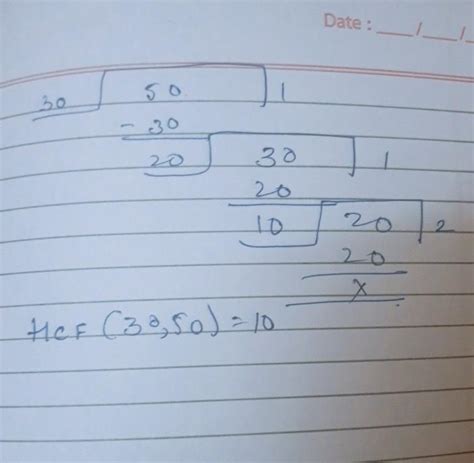 Date : ___/___/_
30 50 1
- 30
20 30 1
20
10 20 2
20
x
HCF (30,50) = 10